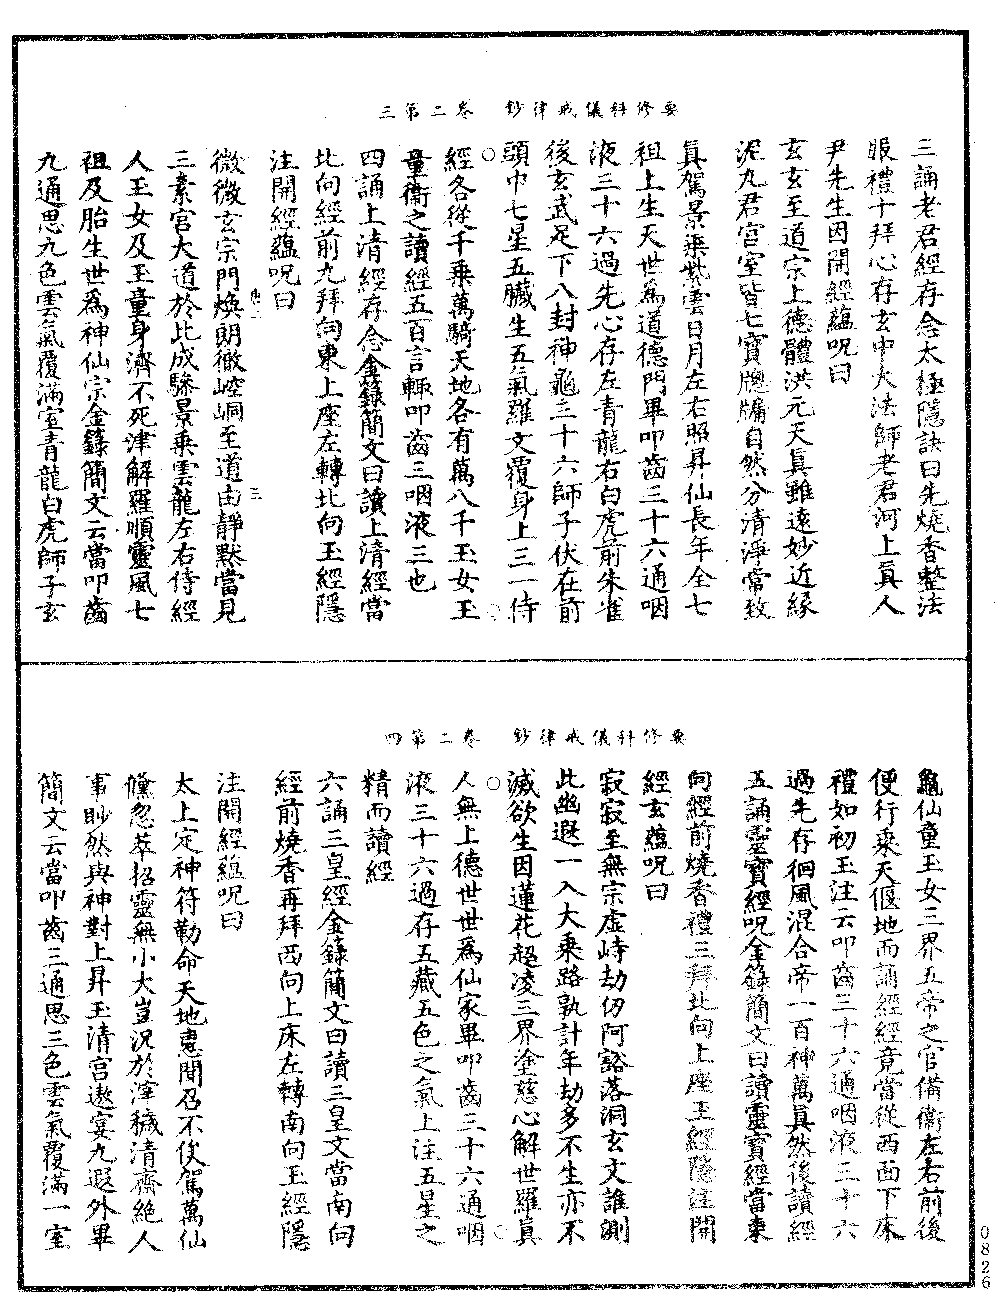 三第二卷　鈔律戒儀科修要
三誦老君經存念太極隱訣曰先燒香整法
服禮十拜心存玄中大法師老君河上真人
尹先生因開經蘊呪曰
玄玄至道宗上德體洪元天真雖遠妙近緣
泥丸君宮室皆七寶牕牖自然分清淨常致
真駕景乘紫雲日月左右照昇仙長年全七
祖上生天世為道德門畢叩齒三十六通咽
液三十六過先心存左青龍右白虎前朱雀
後玄武足下八封神龜三十六師子伏在前
頭巾七星五臟生五氣羅文覆身上三一侍
經各從千乘萬騎天地各有萬八千玉女玉
童衞之讀經五百言輒叩齒三咽液三也
四誦上清經存念金籙簡文曰讀上清經當
北向經前九拜向東上座左轉北向玉經隱
注開經蘊呪曰
微微玄宗門煥朗徹崆峒至道由靜默當見
三素宮大道於此成驂景乘雲龍左右侍經
人玉女及玉童身濟不死津解羅順靈風七
祖及胎生世為神仙宗金籙簡文云當叩齒
九通思九色雲氣覆滿室青龍白虎師子玄
四第二卷　鈔律戒儀科修要
龜仙童玉女三界五帝之官備衞左右前後
便行來天偃地而誦經經竟當從西面下床
禮如初玉注云叩齒三十六通咽液三十六
過先存徊風混合帝一百神萬真然後讀經
五誦靈寶經呪金籙簡文曰讀靈寶經當東
向經前燒香禮三拜北向上座玉經隱注開
經玄蘊呪曰
寂寂至無宗虛峙劫仞阿豁落洞玄文誰測
此幽遐一入大乘路孰計年劫多不生亦不
滅欲生因蓮花超凌三界塗慈心解世羅真
人無上德世世為仙家畢叩齒三十六通咽
液三十六過存五藏五色之氣上注五星之
精而讀經
六誦三皇經金籙簡文曰讀三皇文當南向
經前燒香再拜西向上床左轉南向玉經隱
注開經蘊呪曰
太上定神符勒命天地聽聞召不俟駕萬仙
儵忽萃招靈無小大豈況於滓穢清齋絕人
事眇然與神對上昇玉清宮遨宴九遐外畢
簡文云當叩齒三通思三色雲氣覆滿一室
0826